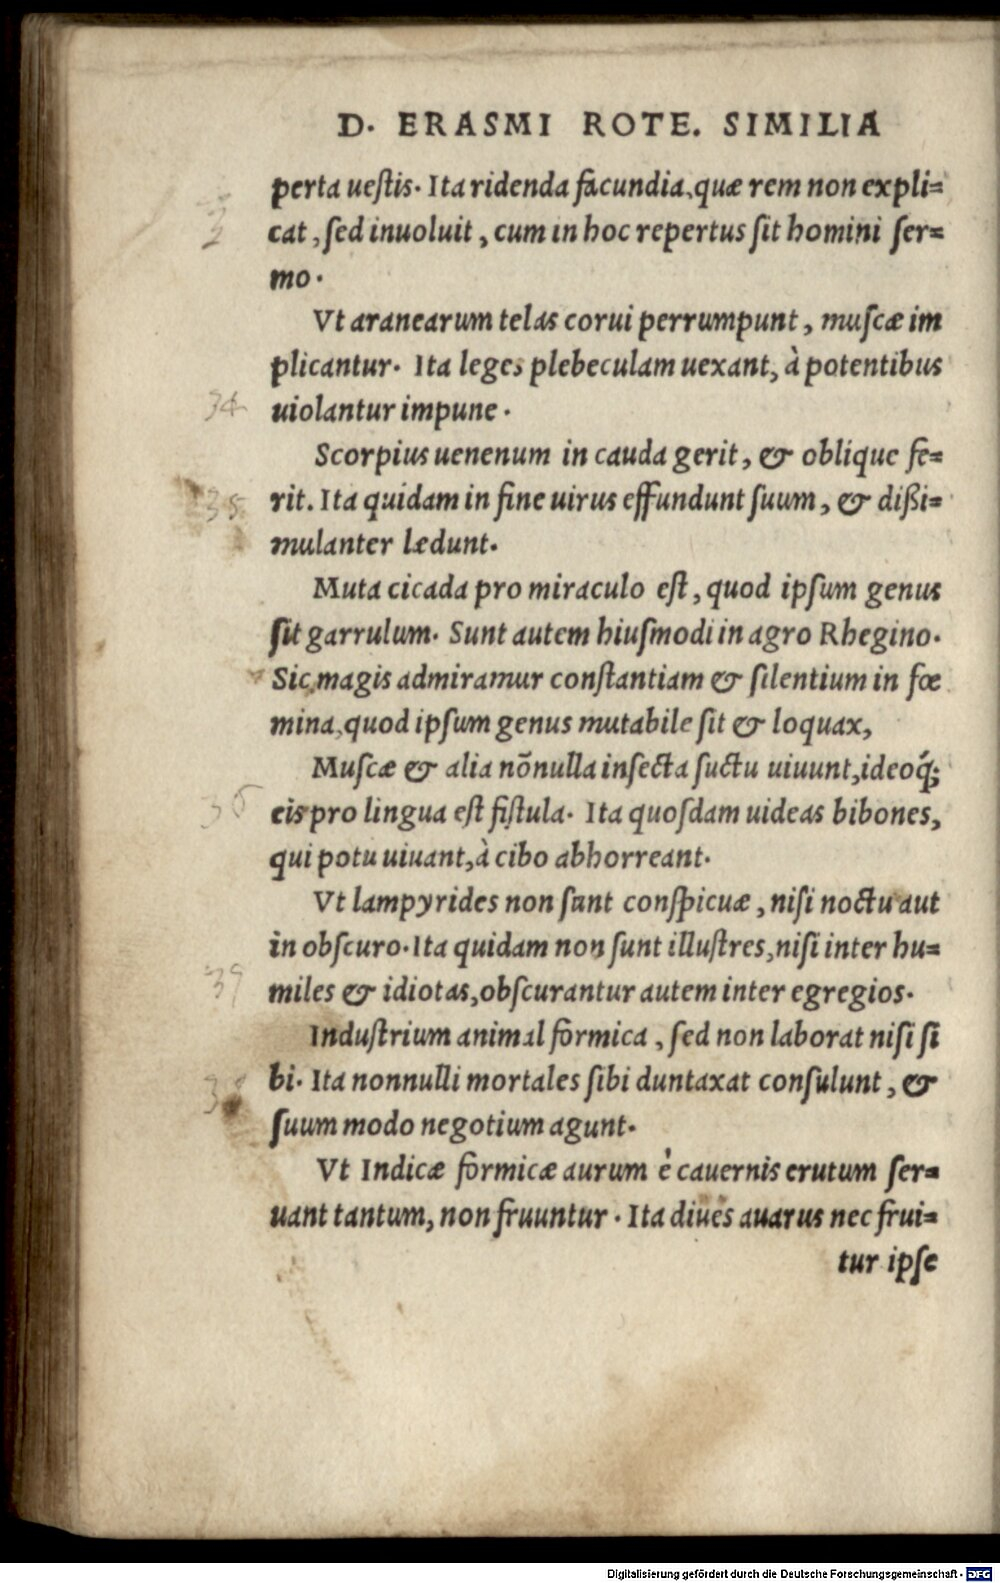 D. ERASMI ROTE. SIMILIA
perta ueſtis. Ita ridenda facundia, quæ rem non expli=
cat, ſed inuoluit, cum in hoc repertus ſit homini ſer=
mo.
Vt aranearum telas corui perrumpunt, muſcæ im
plicantur. Ita leges plebeculam uexant, à potentibus
34
uiolantur impune.
Scorpius uenenum in cauda gerit, & oblique fe=
35
rit. Ita quidam in fine uirus effundunt ſuum, & dißi=
mulanter lædunt.
Muta cicada pro miraculo eſt, quod ipſum genus
ſit garrulum. Sunt autem hiuſmodi in agro Rhegino.
Sic magis admiramur conſtantiam & ſilentium in fœ
mina, quod ipſum genus mutabile ſit & loquax,
Muſcæ & alia nõnulla inſecta ſuctu uiuunt, ideoq́;
36
eis pro lingua eſt fiſtula. Ita quoſdam uideas bibones,
qui potu uiuant, à cibo abhorreant.
Vt lampyrides non ſunt conſpicuæ, niſi noctu aut
in obſcuro. Ita quidam non ſunt illuſtres, niſi inter hu=
miles & idiotas, obſcurantur autem inter egregios.
Induſtrium animal formica, ſed non laborat niſi ſi
bi. Ita nonnulli mortales ſibi duntaxat conſulunt, &
38
ſuum modo negotium agunt.
Vt Indicæ formicæ aurum è cauernis erutum ſer=
uant tantum, non fruuntur. Ita diues auarus nec frui=
tur ipſe
Digitalisierung gefördert durch die Deutsche Forschungsgemeinschaft - DFG